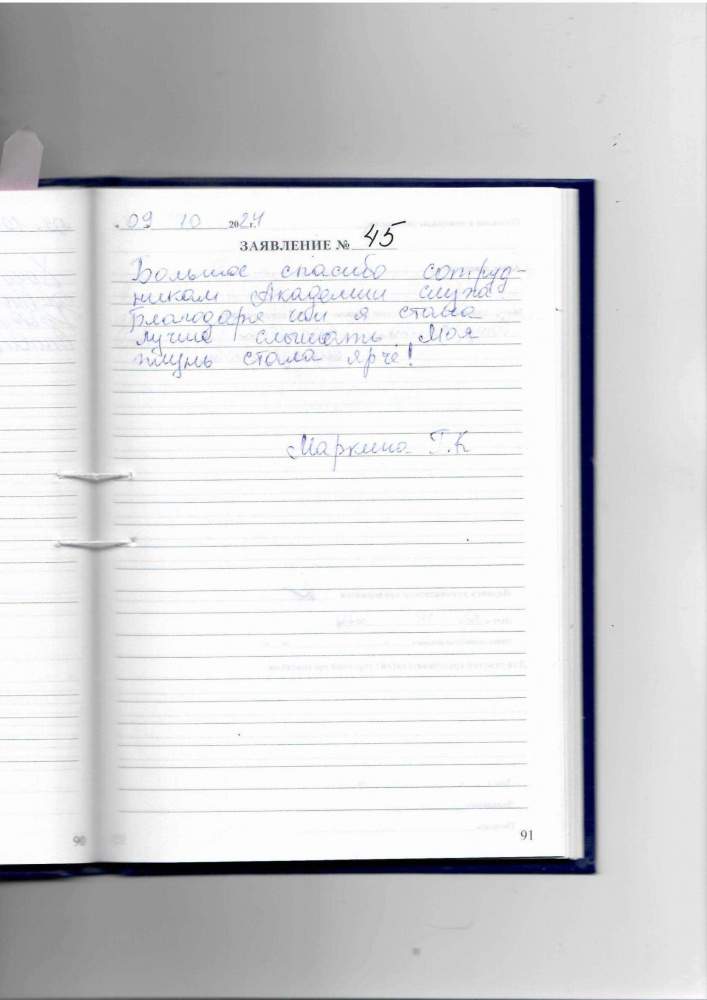 09 10 2024 г.
ЗАЯВЛЕНИЕ № 45
Большое спасибо сотруд-
никам Академии слуха
Благодаря им я стала
лучше слышать. Моя
жизнь стала ярче!
Маркина Г.К
90
91